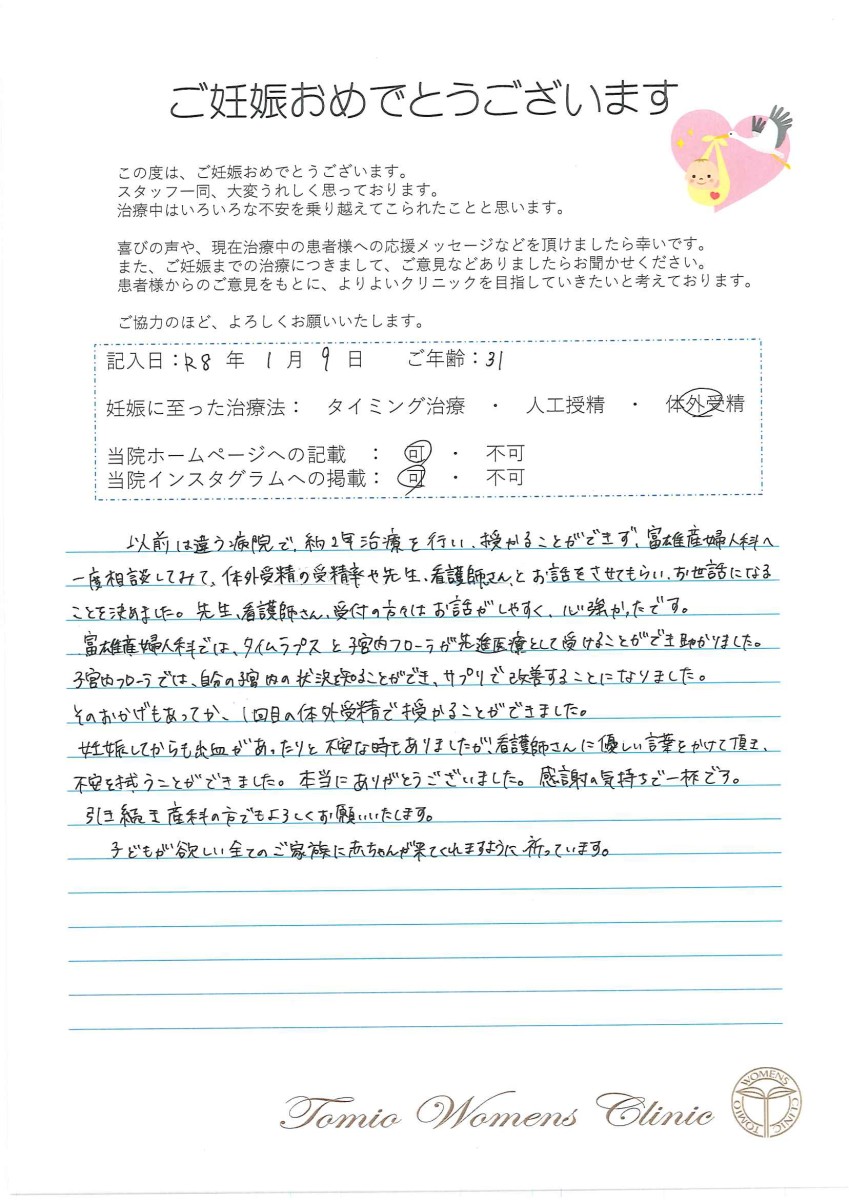 ご妊娠おめでとうございます
この度は、ご妊娠おめでとうございます。
スタッフ一同、大変うれしく思っております。
治療中はいろいろな不安を乗り越えてこられたことと思います。
喜びの声や、現在治療中の患者様への応援メッセージなどを頂けましたら幸いです。
また、ご妊娠までの治療につきまして、ご意見などありましたらお聞かせください。
患者様からのご意見をもとに、よりよいクリニックを目指していきたいと考えております。
ご協力のほど、よろしくお願いいたします。
記入日：R8 年 1 月 9 日 ご年齢：31
妊娠に至った治療法： タイミング治療 ・ 人工授精 ・ 体外受精
当院ホームページへの記載 ： 可 ・ 不可
当院インスタグラムへの掲載： 可 ・ 不可
以前は違う病院で、約2年治療を行い、授かることができず、富雄産婦人科へ
一度相談してみて、体外受精の受精率や先生、看護師さんとお話をさせてもらい、お世話になる
ことを決めました。先生、看護師さん、受付の方々はお話がしやすく、心強かったです。
富雄産婦人科では、タイムラプスと子宮内フローラが先進医療として受けることができ助かりました。
子宮内フローラでは、自分の子宮内の状況を知ることができ、サプリで改善することになりました。
そのおかげもあってか、1回目の体外受精で授かることができました。
妊娠してからも出血があったりと不安な時もありましたが、看護師さんに優しい言葉をかけて頂き、
不安を拭うことができました。本当にありがとうございました。感謝の気持ちで一杯です。
引き続き産科の方でもよろしくお願いいたします。
子どもが欲しい全てのご家族に赤ちゃんが来てくれますように祈っています。
Tomio Womens Clinic
TOMIO WOMENS CLINIC